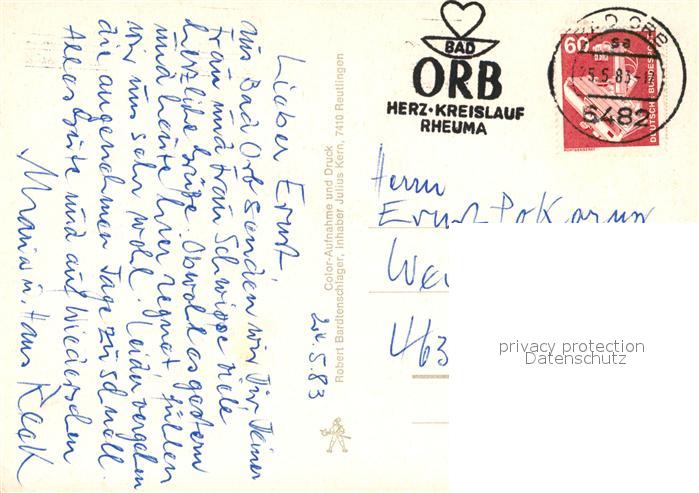 Lieber Ernst,
Aus Bad Orb senden wir Dir, Deiner
Frau und Frau Schwippe viele
herzliche Grüße. Obwohl es gestern
und heute hier regnet fühlen
wir uns sehr wohl. Leider vergehen
die angenehmen Tage zu schnell.
Alles Gute und auf Wiedersehen
Maria u. Hans Keck
24.5.83
Color-Aufnahme und Druck
Robert Bardtenschlager, Inhaber Julius Kern, 7410 Reutlingen
BAD
ORB
HERZ·KREISLAUF
RHEUMA
BAD ORB
sa
25.5.83
6482
60
DEUTSCHE BUNDESPOST
Herrn
Ernst
463
privacy protection
Datenschutz